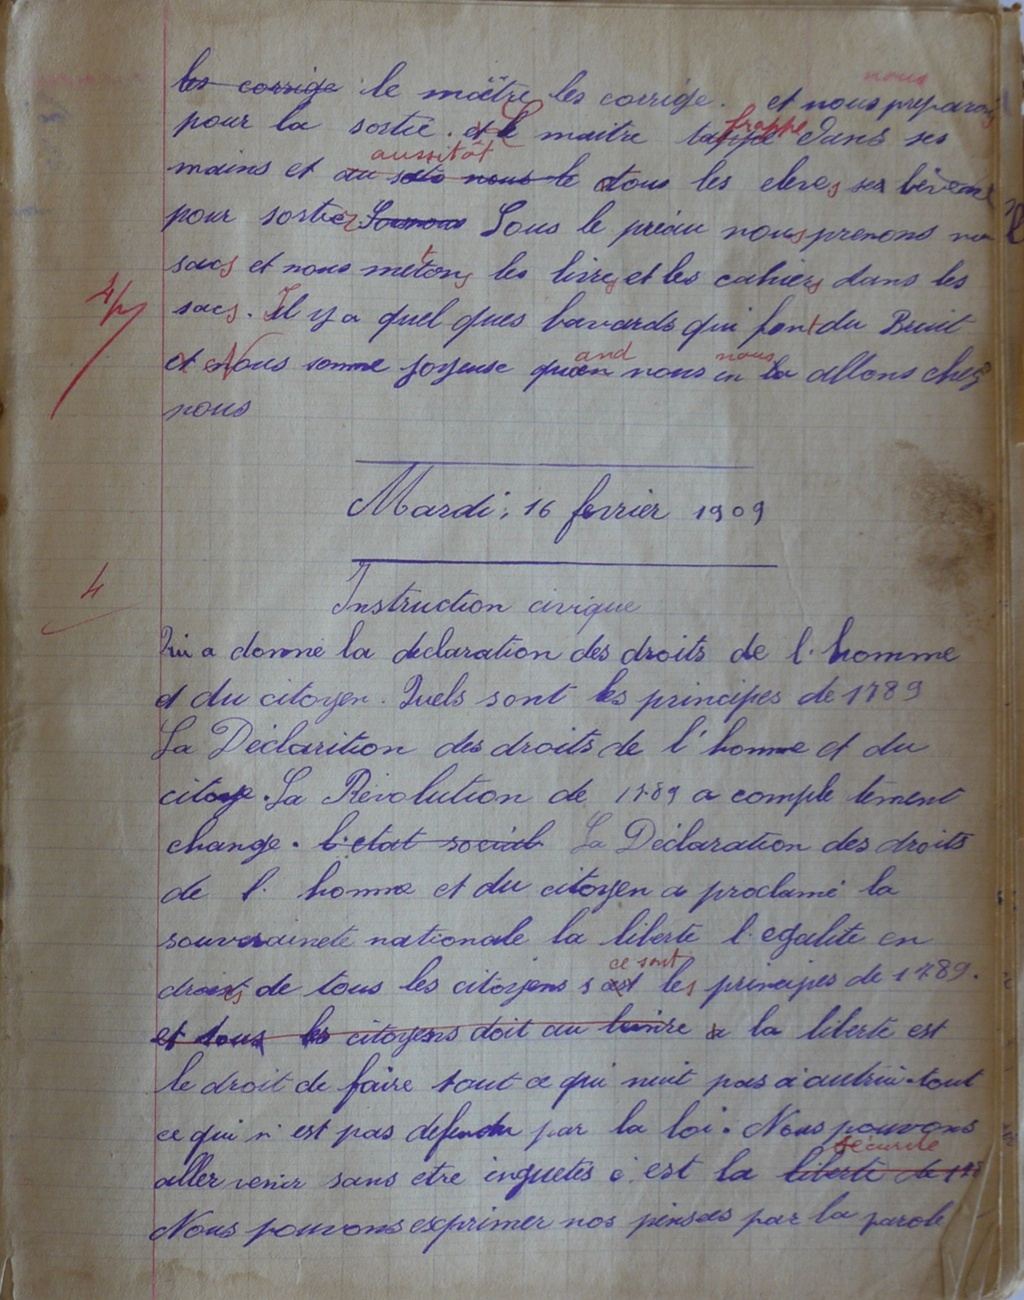 les corrige le maître les corrige. et nous preparons
nous
pour la sortie. et Le maitre tappe frappe dans ses
mains et au aussitôt nous le tous les eleves se lèvent
pour sortir Sous le préau nous prenons
sacs et nous mettons les livres et les cahiers dans les
sacs. Il y a quel ques bavards qui font du Bruit
4½
et Nous somme joyeuse quand nous en la nous allons chez
nous
Mardi, 16 fevrier 1909
4
Instruction civique
Qui a donné la declaration des droits de l'homme
et du citoyen. Quels sont les principes de 1789
La Déclarition des droits de l'homme et du
citoye. La Révolution de 1789 a comple tement
change. l'etat social La Déclaration des droits
de l'homme et du citoyen a proclamé la
souveraineté nationale la liberte l'egalite en
droits de tous les citoyens s est ce sont les principes de 1789.
et tous les citoyens doit au a la liberte est
le droit de faire tout ce qui nuit pas a autrui. tout
ce qui n'est pas defendu par la loi. Nous pouvons
aller venir sans etre inquetés c'est la liberté de sécurité
Nous pouvons exprimer nos pensées par la parole